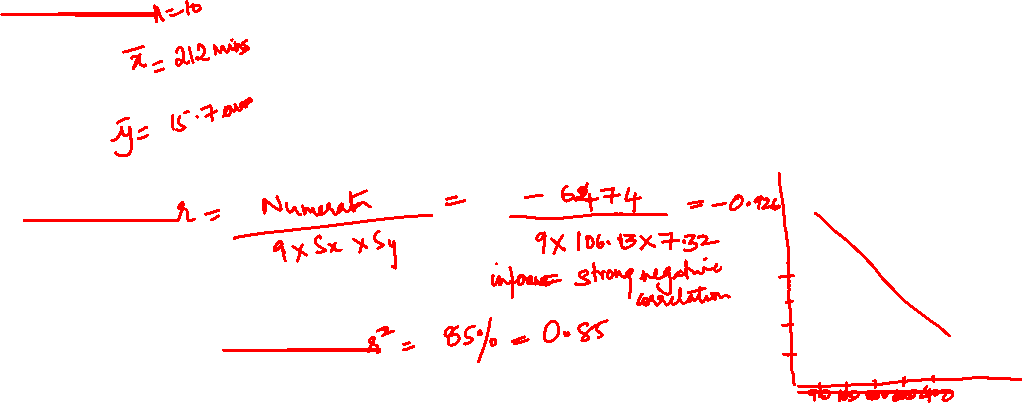 n=10
x̄ = 212 mins
ȳ = 15.7
r = Numerator / 9 x Sx x Sy = - 6474 / 9 x 106.13 x 7.32 = -0.926
strong negative
correlation
r² = 85% = 0.85